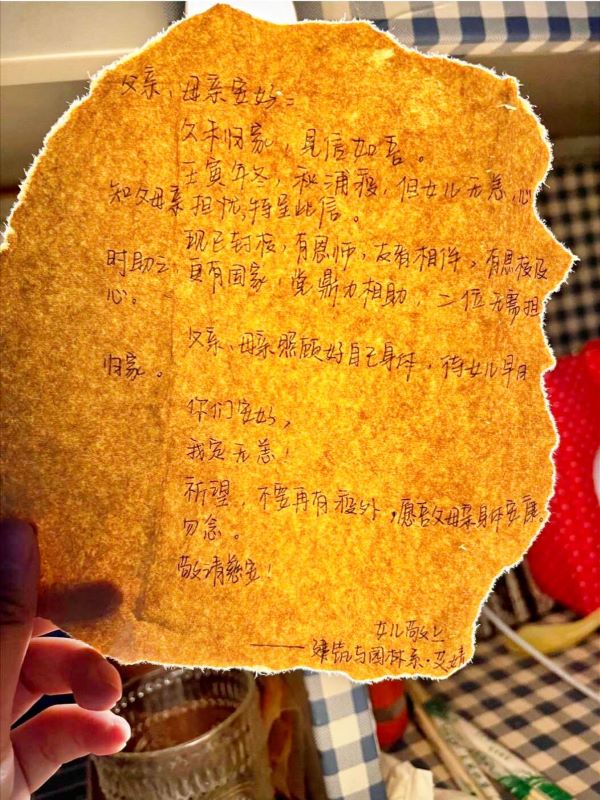 父亲，母亲安好：
久未归家，见信如吾。
壬寅年冬，秋浦疫，但女儿无恙，心
知父母亲担忧，特呈此信。
现已封校，有恩师，友者相伴，有思校及
时助之，更有国家，党鼎力相助，二位无需担
心。
父亲、母亲照顾好自己身体，待女儿早日
归家。
你们安好，
我定无恙！
祈望，不要再有疫外，愿吾父母亲身体安康。
勿念。
敬请慈安！
女儿敬上
——建筑与园林系·艾婧